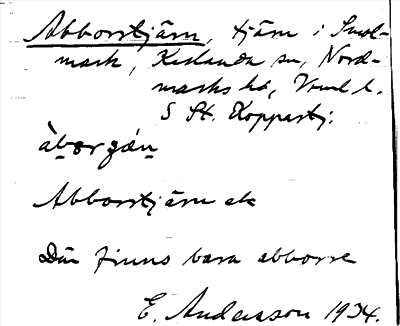 Abborrtjärn, tjärn i Smol-
mark, Karlanda sn, Nord-
marks hd, Vrml l.
S St. Koppartj.
àbȯrʒǽn
Abborrtjärn ek
Där finns bara abborre
E. Andersson 1934.